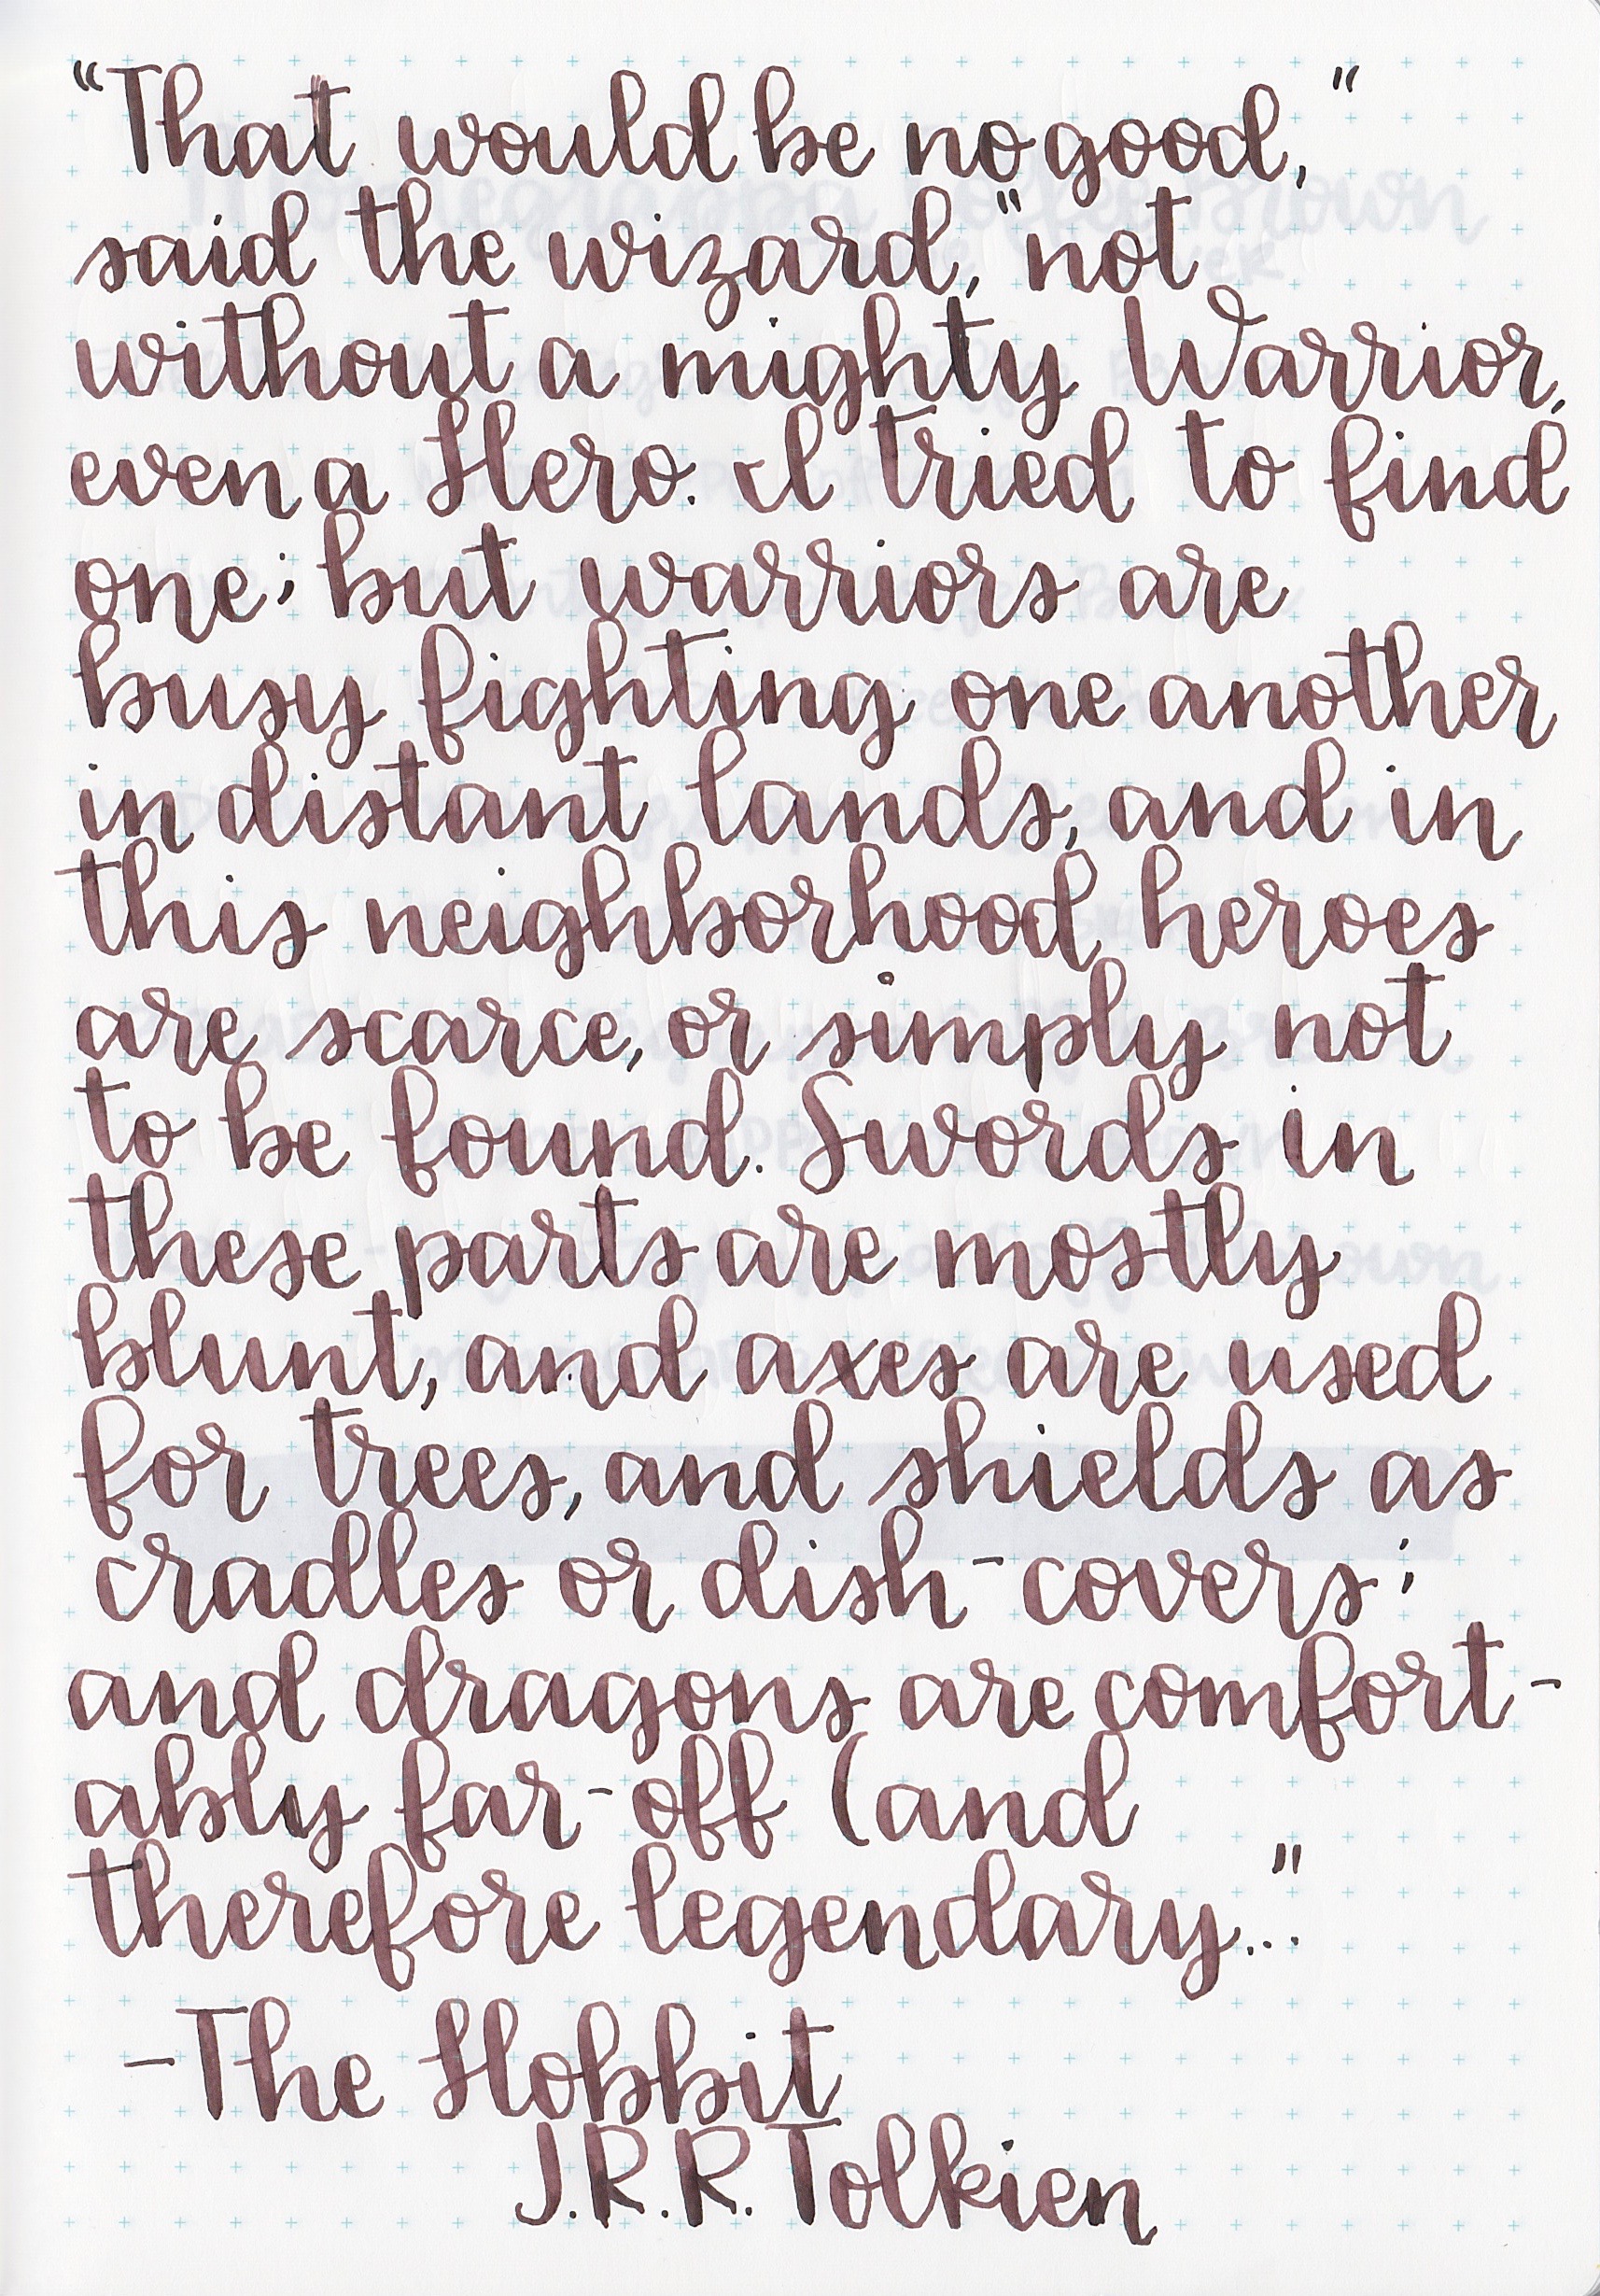 "That would be no good,"
said the wizard, "not
without a mighty Warrior,
even a Hero. I tried to find
one; but warriors are
busy fighting one another
in distant lands, and in
this neighborhood heroes
are scarce, or simply not
to be found. Swords in
these parts are mostly
blunt, and axes are used
for trees, and shields as
cradles or dish-covers;
and dragons are comfort-
ably far-off (and
therefore legendary..."
-The Hobbit
J.R.R. Tolkien